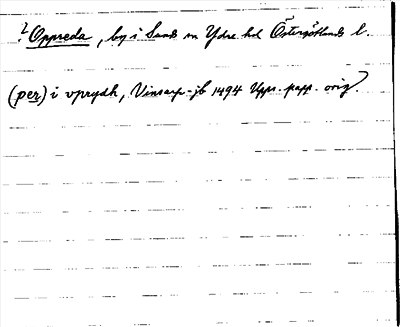 ? Oppreda, by i Sunds sn Ydre hd Östergötlands l.
(per) i vprydh, Vinsarp-jb 1494 Upps. papp. orig.